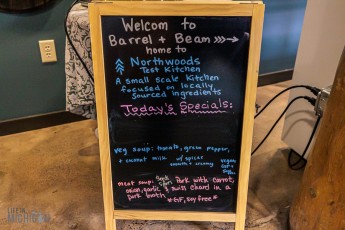 Welcome to
Barrel + Beam
home to
Northwoods
Test Kitchen
A small scale kitchen
focused on locally
sourced ingredients
Today's Specials:
veg soup: tomato, green pepper,
+ coconut milk w/ spices
vegan
meat soup: Pork with carrot,
onion, garlic & swiss chard in a
pork broth *GF, soy free*